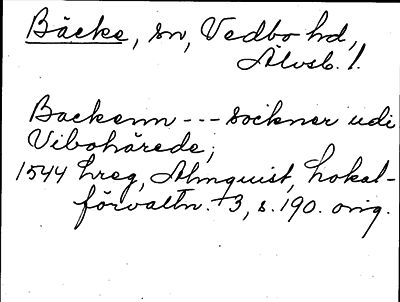 Bäcke, sn, Vedbo hd,
Älvsb. l.
Backenn --- sockner udi
Vibohärede,
1544 hreg, Almquist, Lokal-
förvaltn. 3, s. 190. orig.